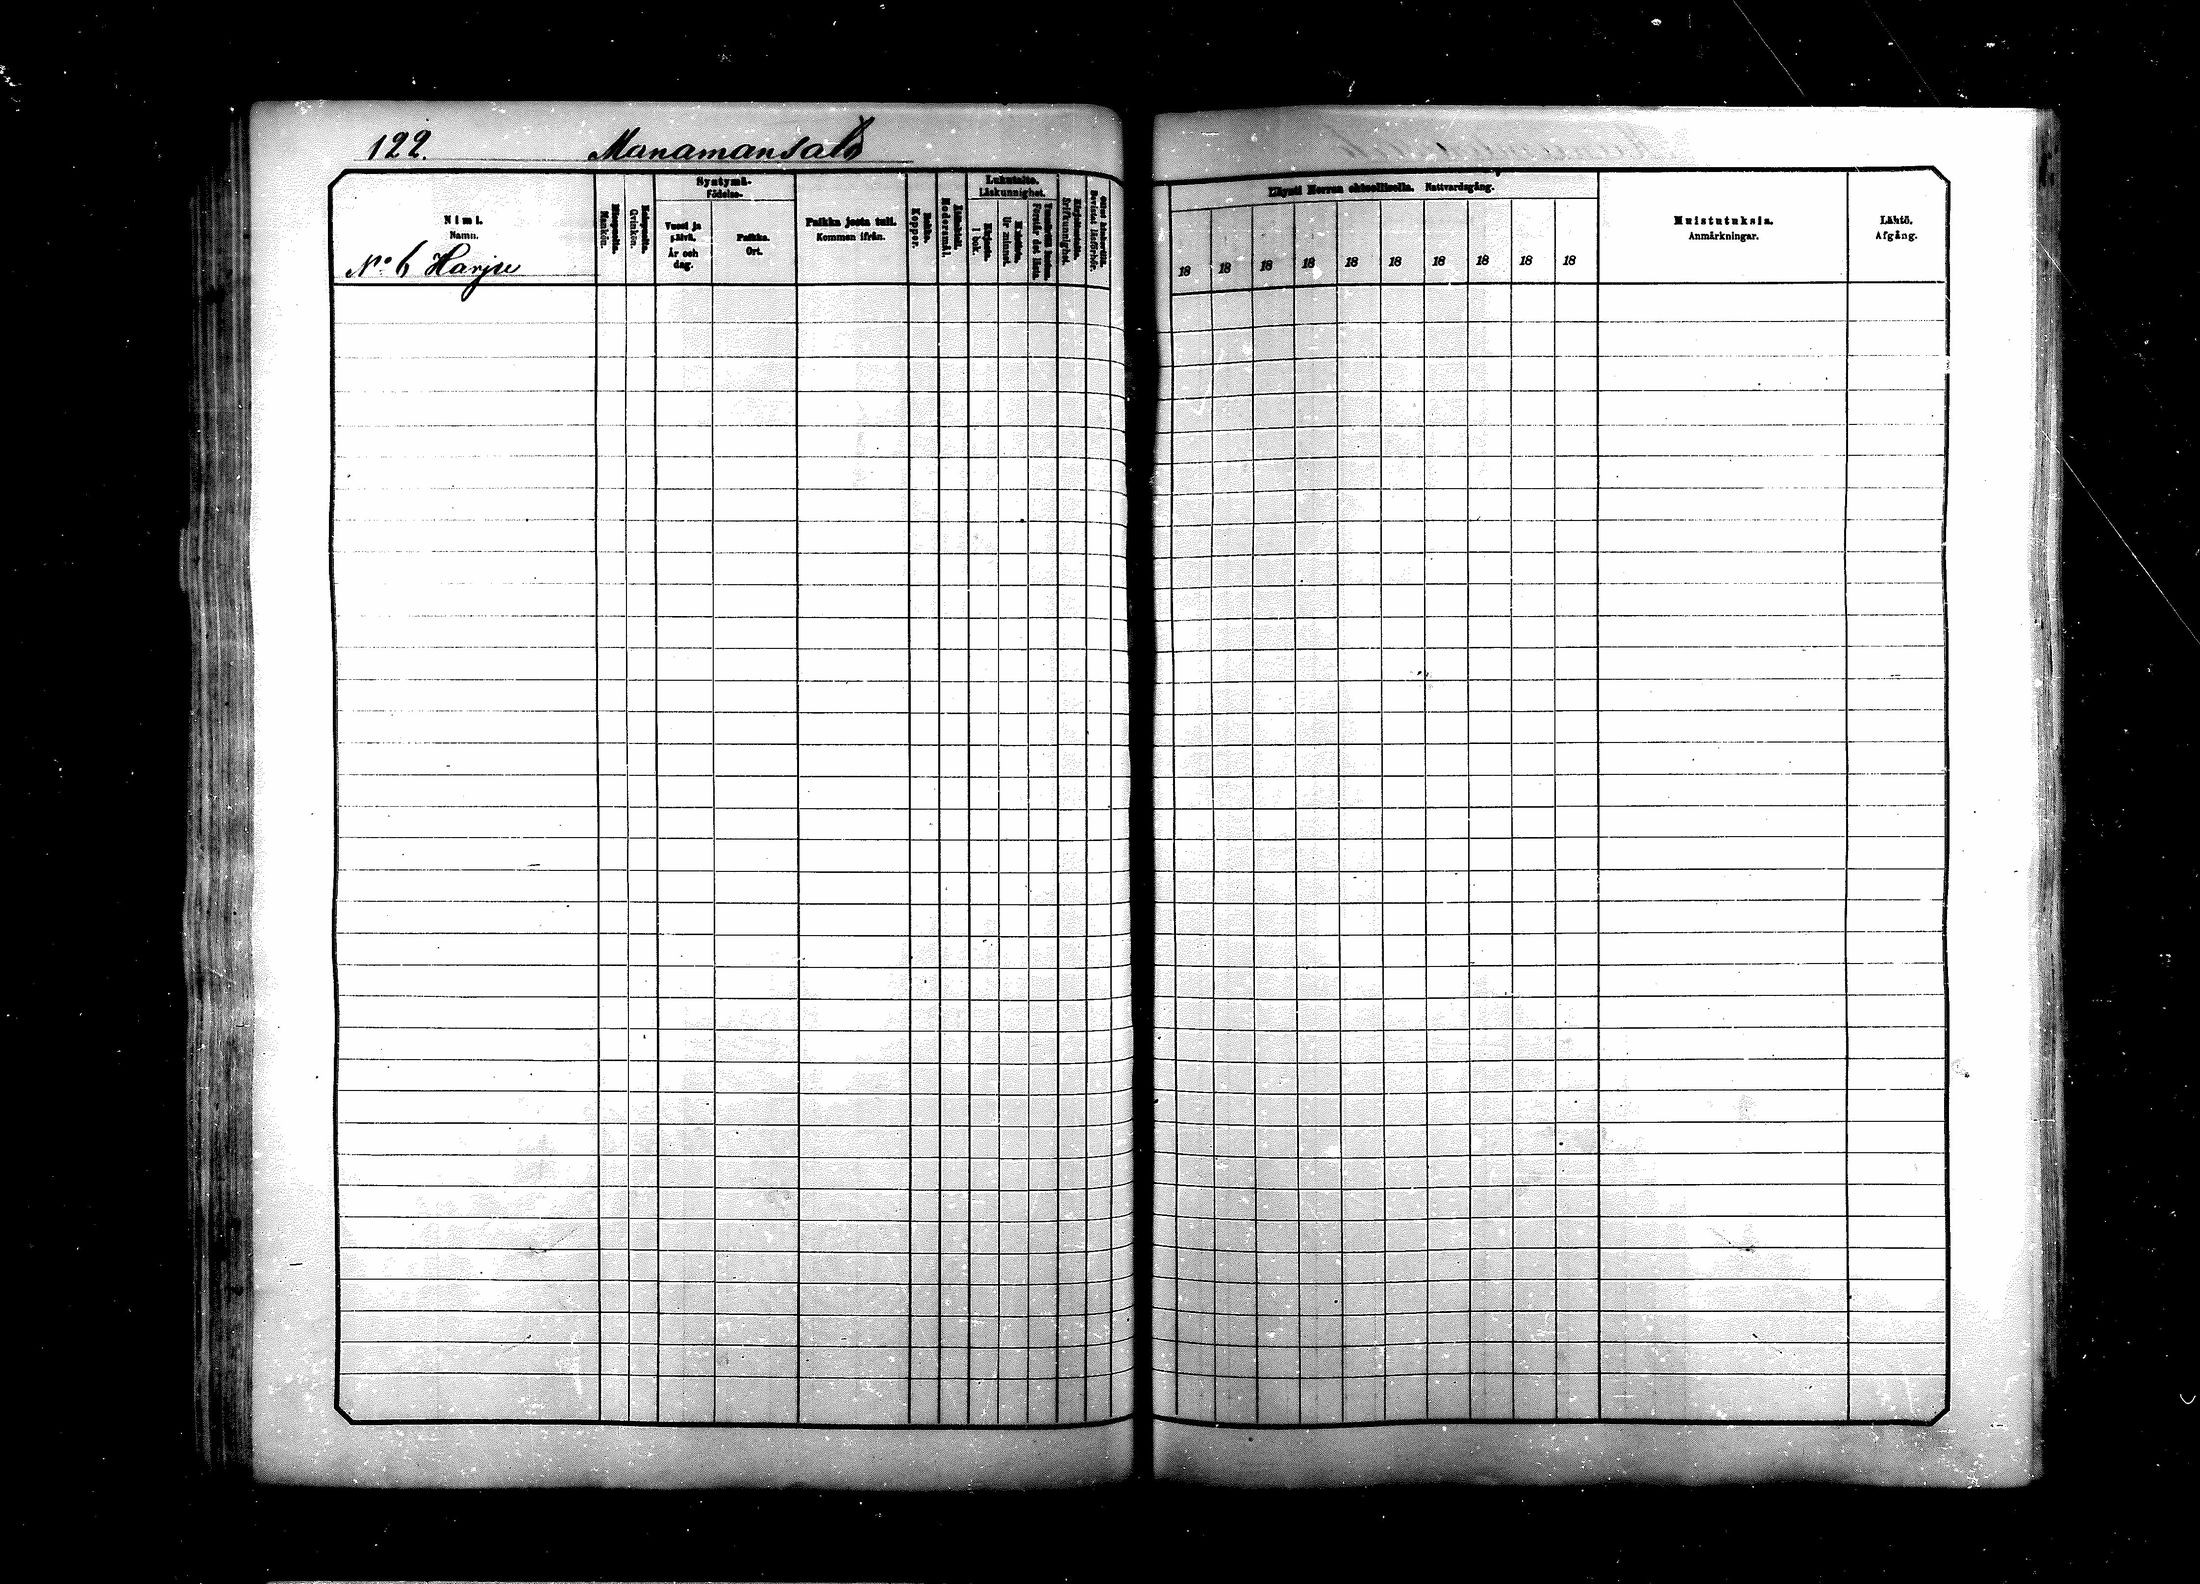 122. Manamansalo
Nimi.
Namn.
No 6 Harju
Miespuolia.
Mankön.
Naispuolia.
Qvinkön.
Syntymä-
Födelse-
Vuosi ja
päivä.
År och
dag.
Paikka.
Ort.
Paikka josta tuli.
Kommen ifrån.
Rokko.
Koppor.
Äidinkieli.
Modersmål.
Lukutaito.
Läskunnighet.
Kirjasta.
I bok.
Ulkoa.
Ur minnet.
Förstår det lästa.
Käynti Herran ehtoollisella. Nattvardsgång.
18 18 18 18 18 18 18 18 18 18
Muistutuksia.
Anmärkningar.
Lähtö.
Afgång.